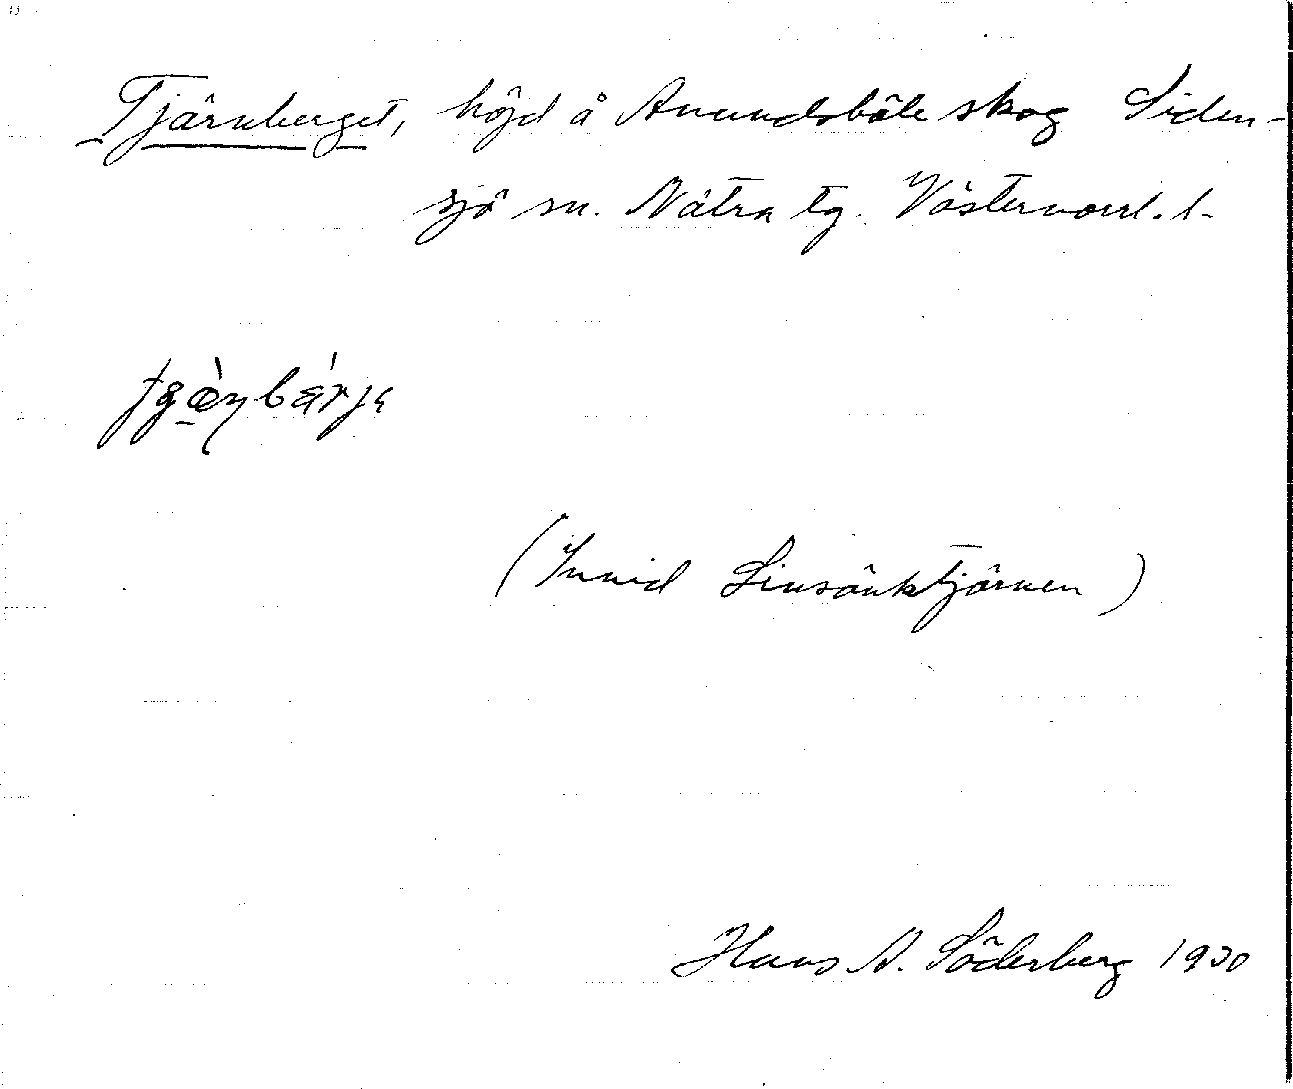 Tjärnberget, höjd å Anundsböle skog Siden-
sjö sn. Nätra tg. Västernorrl. l.
(Invid Linsänktjärnen)
Hans A. Söderberg 1930